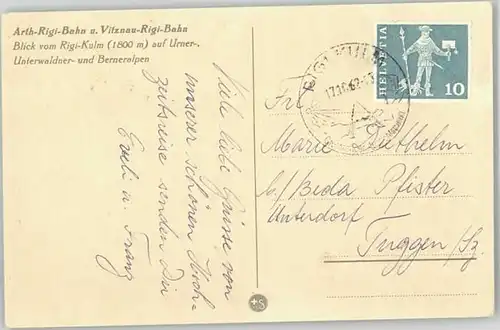 Arth-Rigi-Bahn u. Vitznau-Rigi-Bahn
Blick vom Rigi-Kulm (1800 m) auf Urner-,
Unterwaldner- und Berneralpen
Viele liebe Grüsse von
unserer schönen Hoch-
zeitsreise senden Dir
Emli u. Franz
HELVETIA
10
RIGI KULM
17.10.62-13
Frl.
Marie Diethelm
b/ Beda Pfister
Unterdorf
Tuggen/Sz.
+S